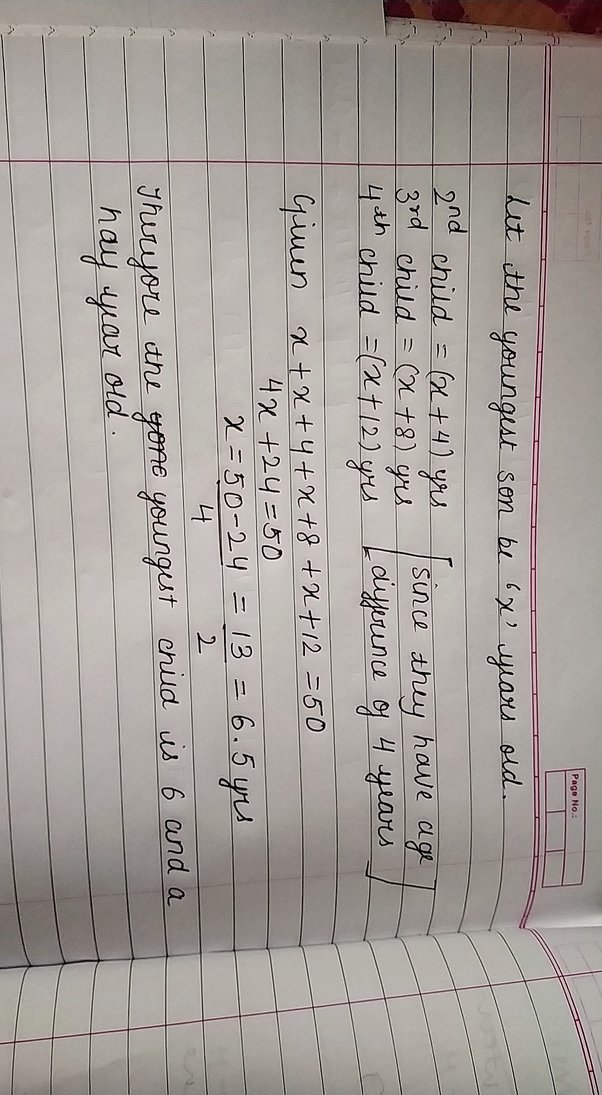 Page No.:
Let the youngest son be 'x' years old.
2nd child = (x+4) yrs [since they have age
3rd child = (x+8) yrs differince of 4 years]
4th child = (x+12) yrs
Given x + x+4 + x+8 + x+12 = 50
4x + 24 = 50
x = 50-24 = 13 = 6.5 yrs
4 2
Therefore the youngest child is 6 and a
half year old.